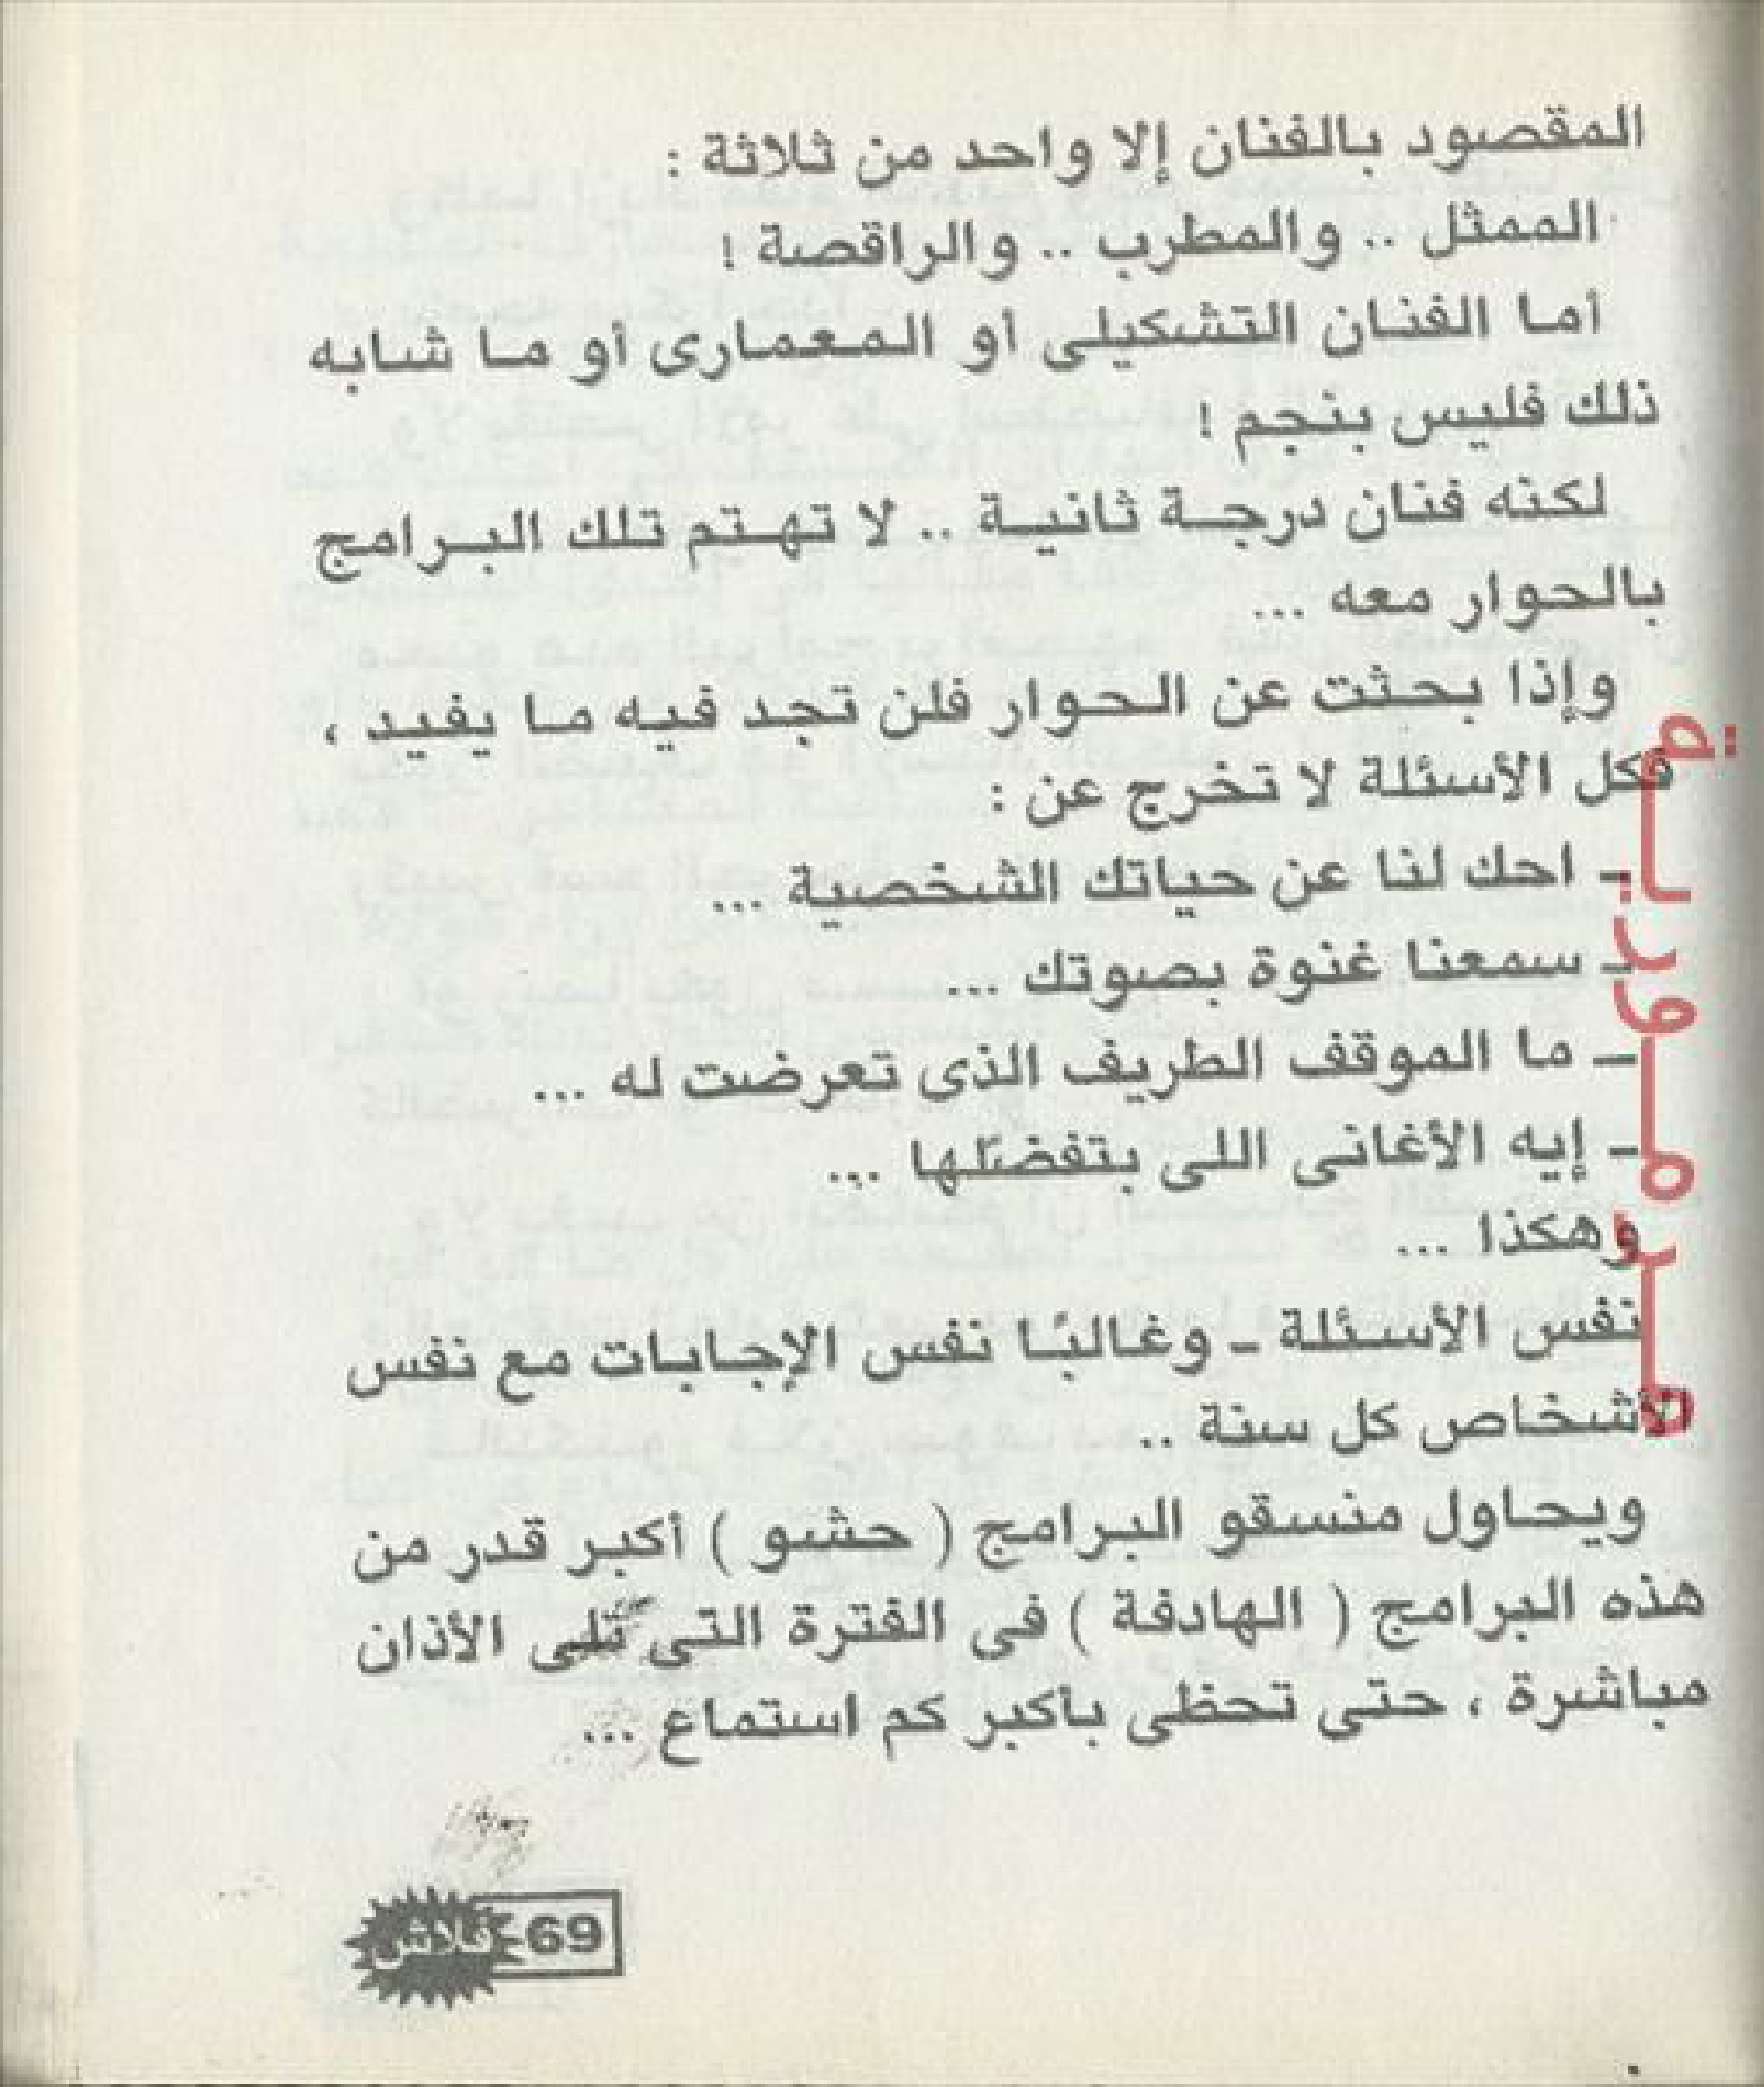 المقصود بالفنان إلا واحد من ثلاثة :
الممثل .. والمطرب .. والراقصة !
أما الفنان التشكيلى أو المعمارى أو ما شابه
ذلك فليس بنجم !
لكنه فنان درجة ثانية .. لا تهتم تلك البرامج
بالحوار معه ...
وإذا بحثت عن الحوار فلن تجد فيه ما يفيد ،
فكل الأسئلة لا تخرج عن :
ـ احك لنا عن حياتك الشخصية ...
ـ سمعنا غنوة بصوتك ...
ـ ما الموقف الطريف الذى تعرضت له ...
ـ إيه الأغانى اللى بتفضلها ...
وهكذا ...
نفس الأسئلة ـ وغالبًا نفس الإجابات مع نفس
الأشخاص كل سنة ..
ويحاول منسقو البرامج ( حشو ) أكبر قدر من
هذه البرامج ( الهادفة ) فى الفترة التى تلى الأذان
مباشرة ، حتى تحظى بأكبر كم استماع ...
69
مـرمـوريـة